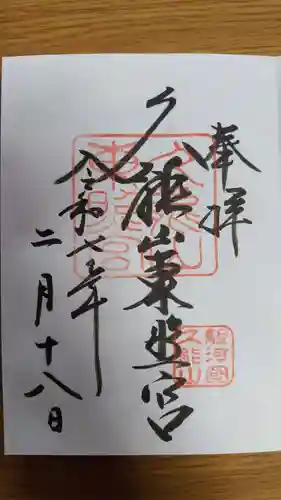 奉拝
久能山東照宮
令和七年
二月十八日
久能山東照宮
駿河国
久能山